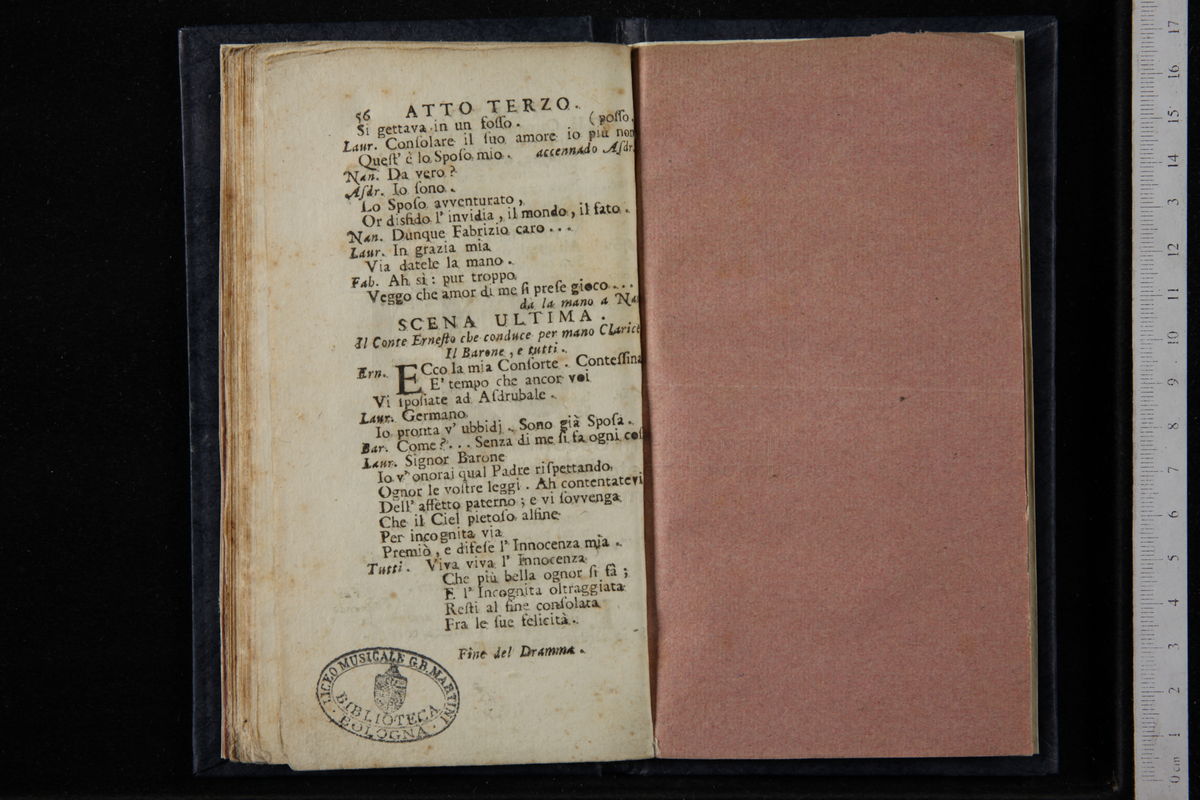 56 ATTO TERZO.
Si gettava in un fosso. (posso.
Laur. Consolare il suo amore io più non
Quest' è lo Sposo mio. accennado Asdr.
Nan. Da vero?
Asdr. Io sono.
Lo Sposo avventurato,
Or disfido l' invidia, il mondo, il fato.
Nan. Dunque Fabrizio caro...
Laur. In grazia mia
Via datele la mano.
Fab. Ah sì: pur troppo
Veggo che amor di me si prese gioco...
da la mano a Nan
SCENA ULTIMA.
Il Conte Ernesto che conduce per mano Clarice
Il Barone, e tutti.
Ern. ECco la mia Consorte. Contessina
E' tempo che ancor voi
Vi sposiate ad Asdrubale.
Laur. Germano
Io pronta v' ubbidj. Sono già Sposa.
Bar. Come?... Senza di me si fa ogni cosa
Laur. Signor Barone
Io v' onorai qual Padre rispettando
Ognor le vostre leggi. Ah contentatevi
Dell' affetto paterno; e vi sovvenga
Che il Ciel pietoso alfine
Per incognita via
Premiò, e difese l' Innocenza mia.
Tutti. Viva viva l' Innocenza
Che più bella ognor si fà;
E l' Incognita oltraggiata
Resti al fine consolata
Fra le sue felicità.
Fine del Dramma.
LICEO MUSICALE G.B. MARTINI
BIBLIOTECA
BOLOGNA
0 cm 1 2 3 4 5 6 7 8 9 10 11 12 13 14 15 16 17